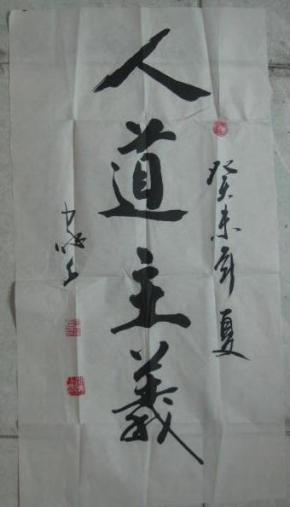 癸未年夏
人道主義